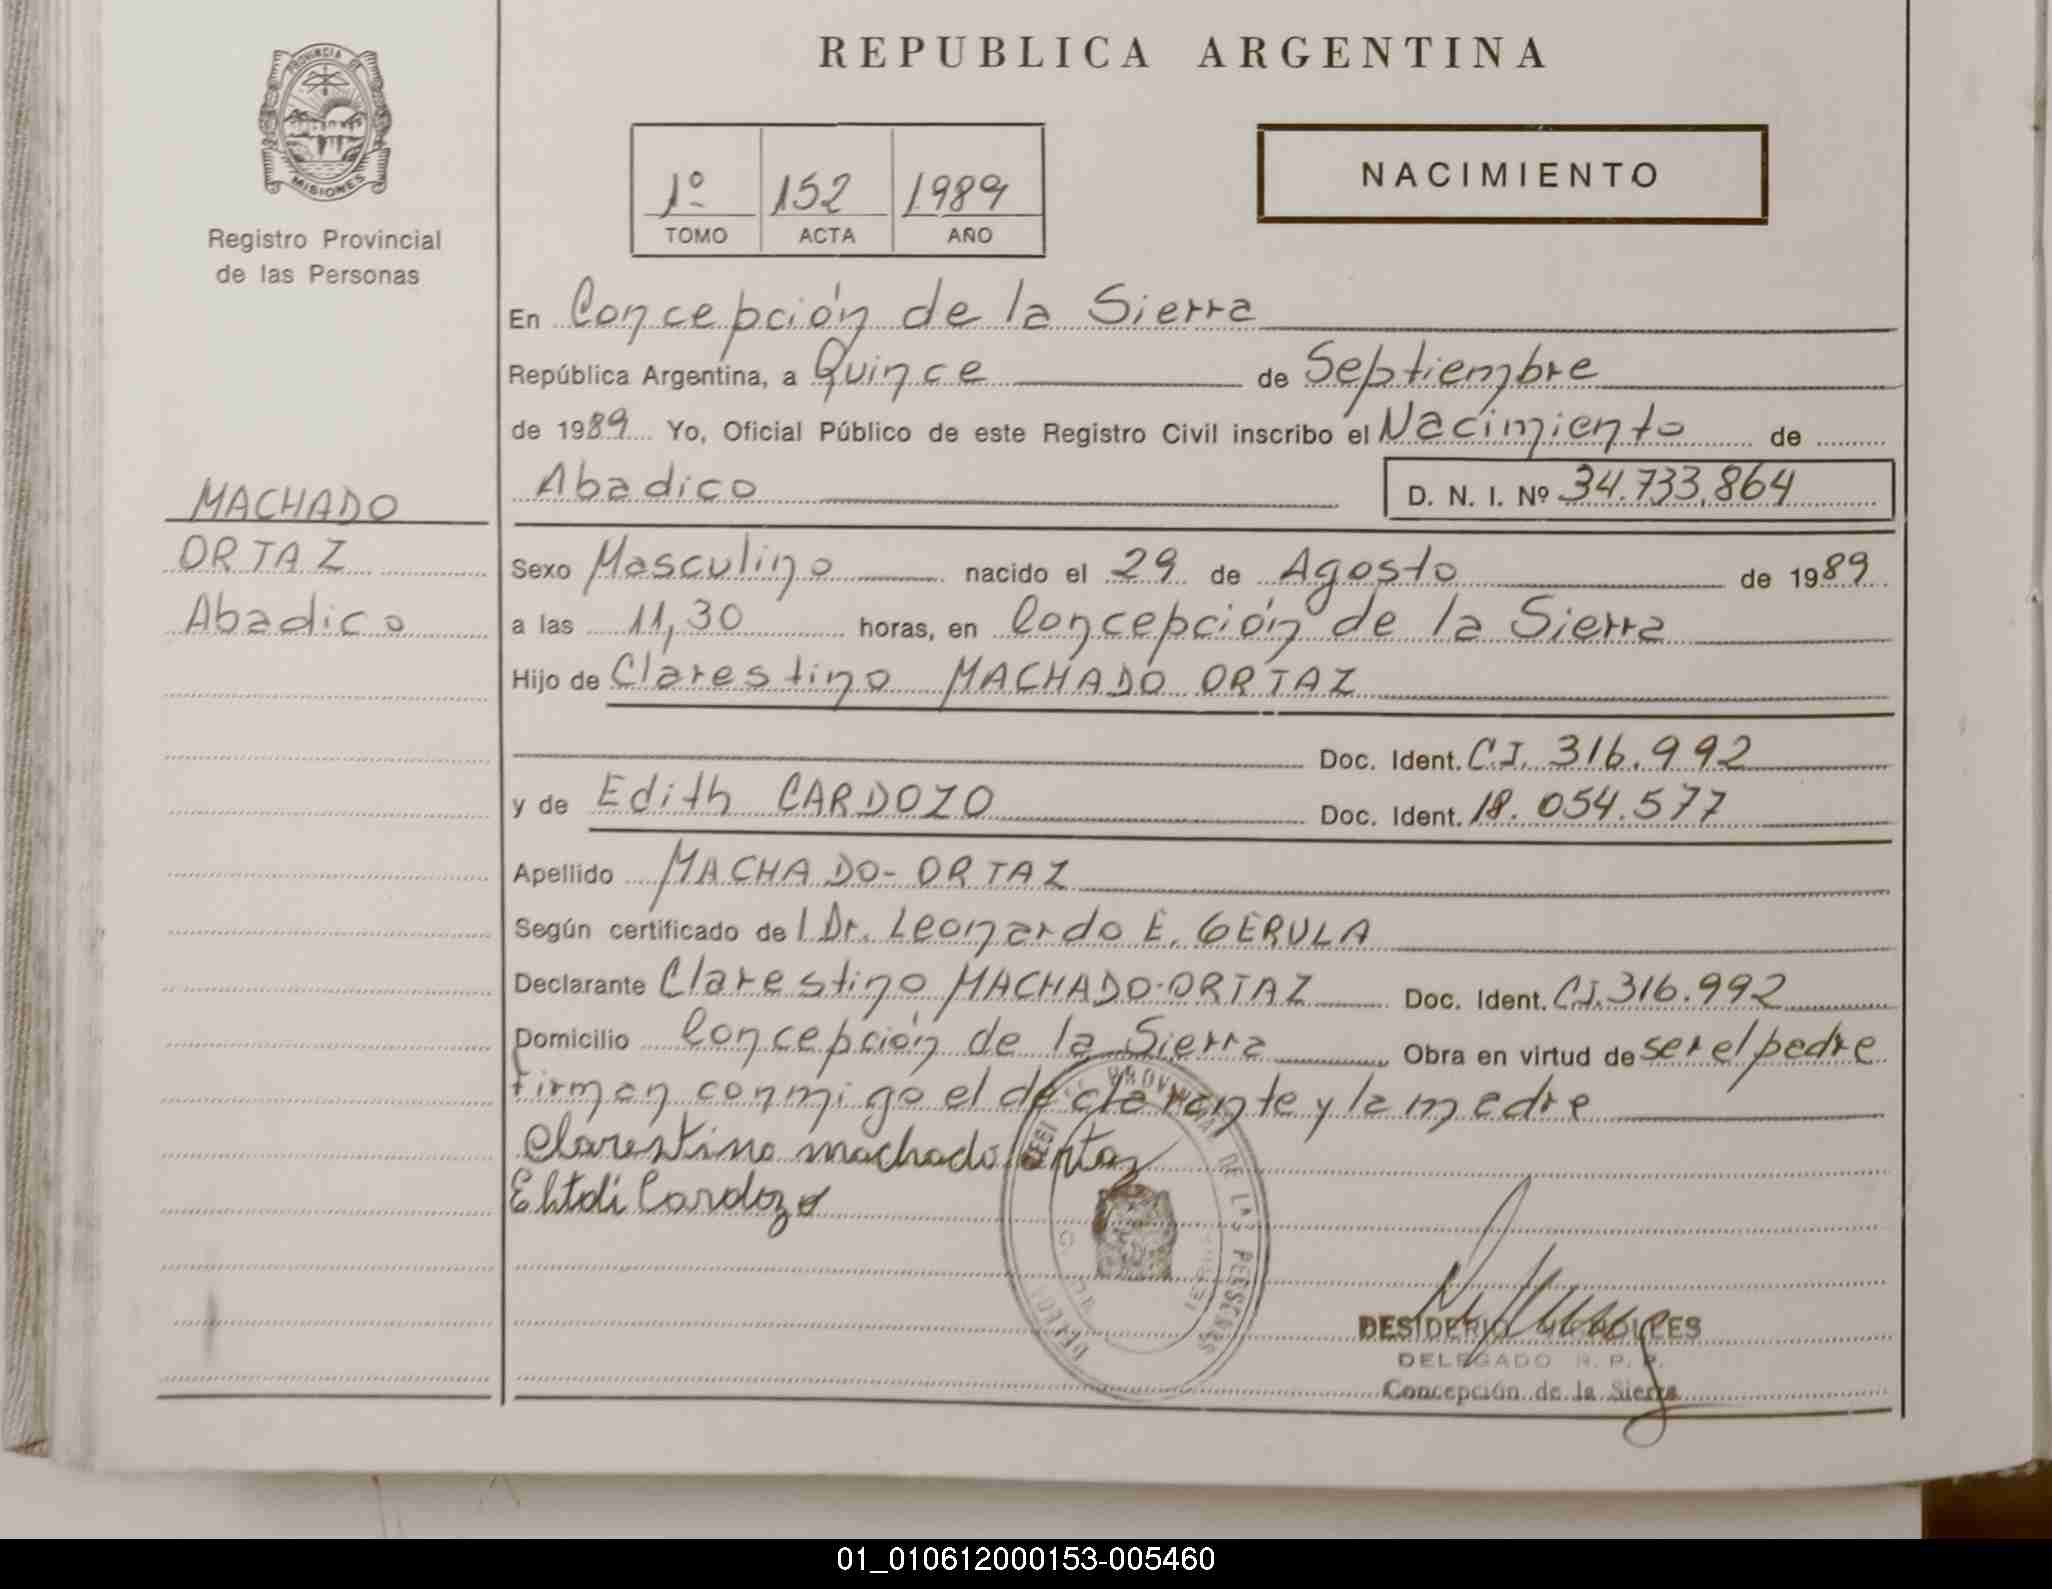 REPUBLICA ARGENTINA
PROVINCIA DE
MISIONES
Registro Provincial
de las Personas
1º 152 1989
TOMO ACTA AÑO
NACIMIENTO
En Concepción de la Sierra
República Argentina, a Quince de Septiembre
de 1989 Yo, Oficial Público de este Registro Civil inscribo el Nacimiento de
Abadico D. N. I. Nº 34.733.864
MACHADO
ORTAZ
Abadico
Sexo Masculino nacido el 29 de Agosto de 1989
a las 11,30 horas, en Concepción de la Sierra
Hijo de Clarestino MACHADO ORTAZ
Doc. Ident. C.I. 316.992
y de Edith CARDOZO Doc. Ident. 18.054.577
Apellido MACHADO-ORTAZ
Según certificado de l Dr. Leonardo E. GERULA
Declarante Clarestino MACHADO-ORTAZ Doc. Ident. C.I. 316.992
Domicilio Concepción de la Sierra Obra en virtud de ser el padre
firman conmigo el declarante y la madre
Clarestino machado ortaz
Ehtdi Cardozo
PROVINCIAL DE LAS PERSONAS
DESIDERIO
DELEGADO R. P. P.
Concepción de la Sierra
01_010612000153-005460